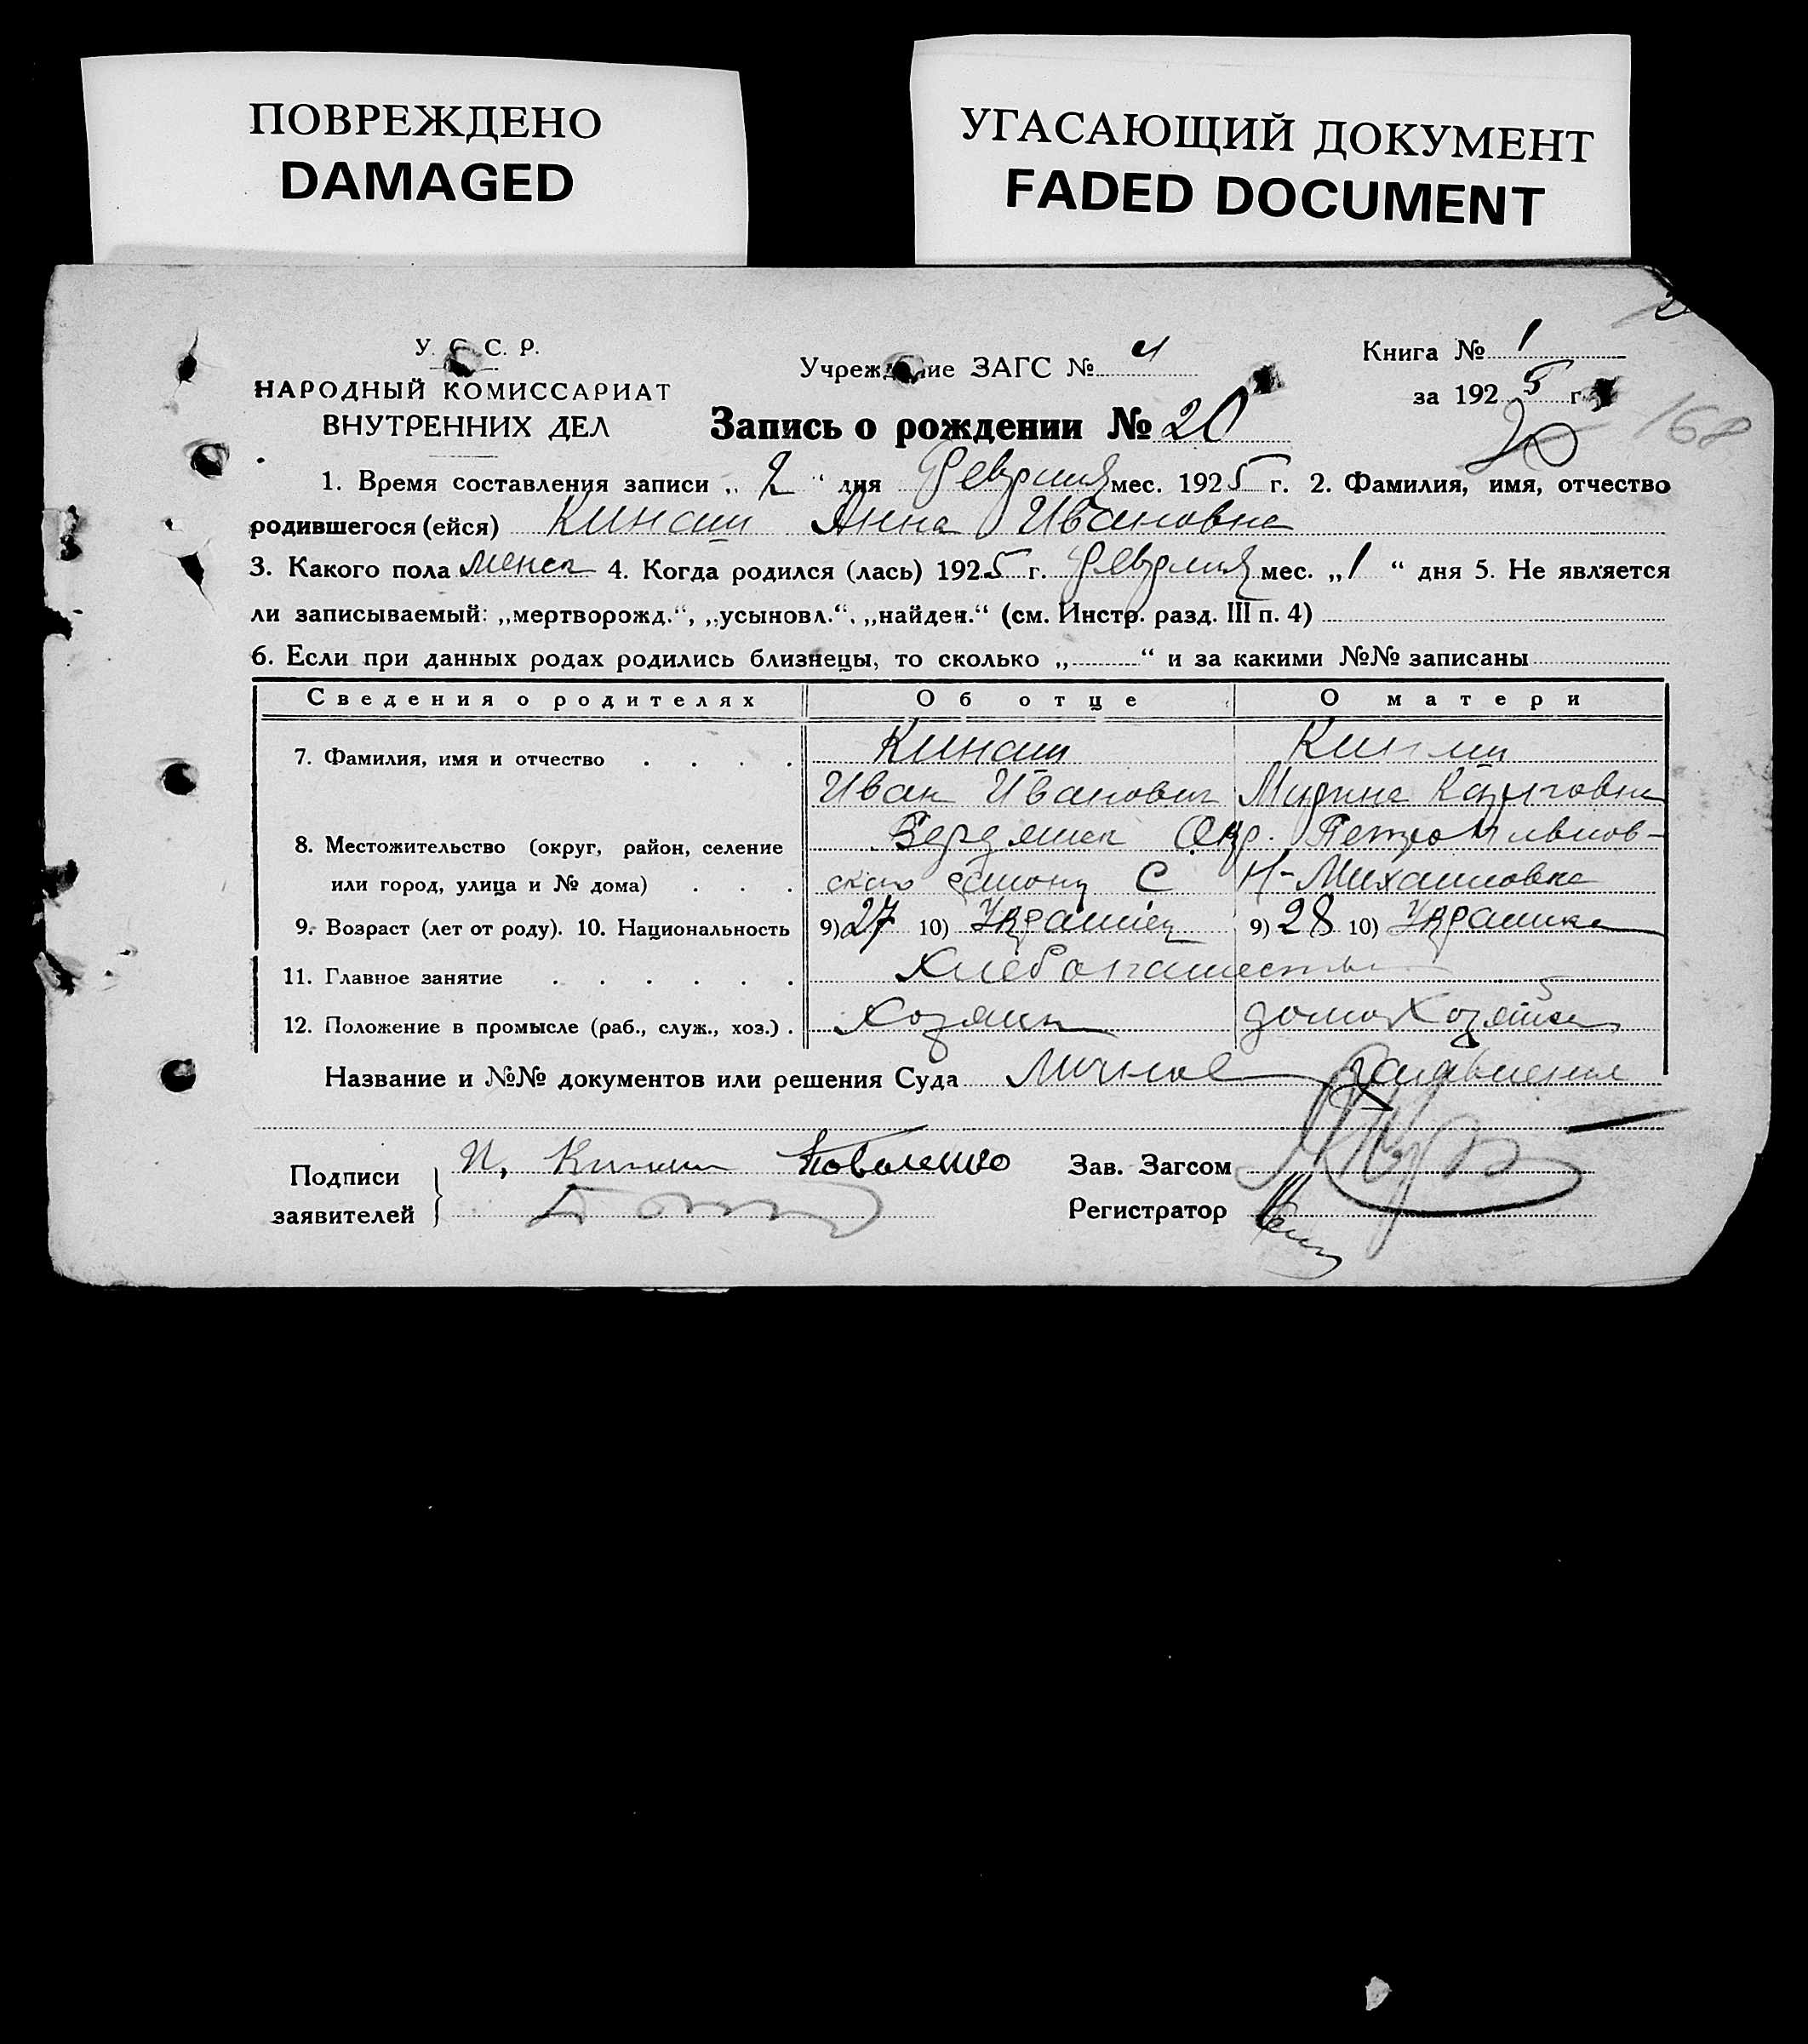 ПОВРЕЖДЕНО
DAMAGED
УГАСАЮЩИЙ ДОКУМЕНТ
FADED DOCUMENT
У. С. С. Р.
НАРОДНЫЙ КОМИССАРИАТ
ВНУТРЕННИХ ДЕЛ
Учреждение ЗАГС №
Запись о рождении № 20
Книга № 1
за 1925 г.
20
168
1. Время составления записи „ 2 “ дня Февраля мес. 1925 г. 2. Фамилия, имя, отчество
родившегося (ейся) Кинаш Анна Ивановна
3. Какого пола женск 4. Когда родился (лась) 1925 г. Февраля мес. „1 “ дня 5. Не является
ли записываемый: „мертворожд.“, „усыновл.“, „найден.“ (см. Инстр. разд. III п. 4)
6. Если при данных родах родились близнецы, то сколько „ “ и за какими №№ записаны
Сведения о родителях Об отце О матери
7. Фамилия, имя и отчество . . . . Кинаш Кинаш
Иван Иванович
8. Местожительство (округ, район, селение Бердянск Окр.
или город, улица и № дома) . . . ского району С Н-Михайловка
9. Возраст (лет от роду). 10. Национальность 9) 27 10) Украинец 9) 28 10) Украинка
11. Главное занятие . . . . . . Хлебопашество
12. Положение в промысле (раб., служ., хоз.) . Хозяин домоХозяйка
Название и №№ документов или решения Суда Личное заявление
Подписи
заявителей
И, Кинаш Коваленко
Зав. Загсом
Регистратор